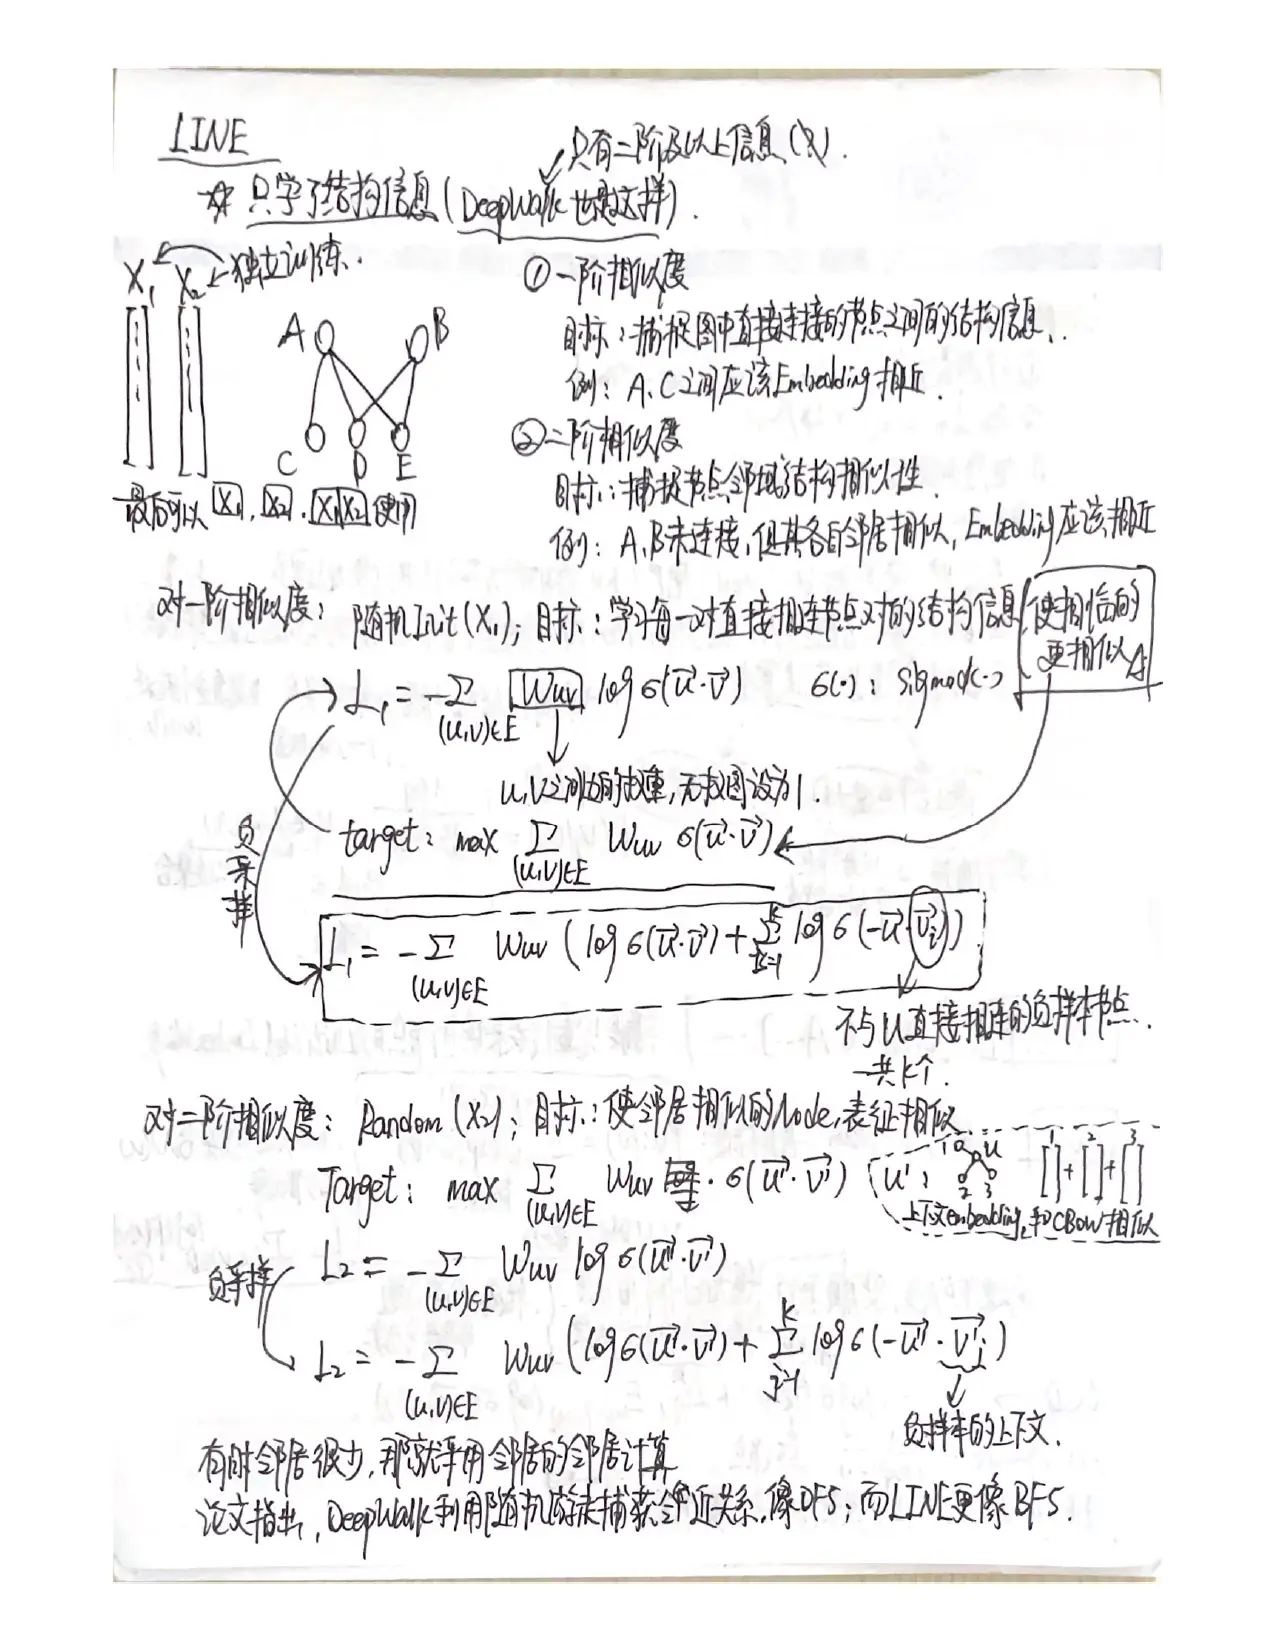 LINE
只有二阶及以上信息(X).
☆ 只学了结构信息(DeepWalk 也是这样).
X₁ X₂ ← 独立训练.
① 一阶相似度
目标:捕捉图中直接连接的节点之间的结构信息.
例:A、C之间应该Embedding相近.
② 二阶相似度
目标:捕捉节点邻域结构相似性.
例:A、B未连接,但其各自邻居相似,Embedding应该相近
A B
C D E
最后可以 X₁、X₂、X₁X₂ 使用
对一阶相似度: 随机Init(X₁); 目标:学习每一对直接相连节点对的结构信息,使相临的
更相似
L₁ = -Σ_{(u,v)∈E} Wuv log σ(u⃗·v⃗) σ(·): sigmod(·)
u,v之间边的权重,无权图设为1.
target: max Σ_{(u,v)∈E} Wuv σ(u⃗·v⃗)
负采样
L₁ = -Σ_{(u,v)∈E} Wuv (log σ(u⃗·v⃗) + Σ_{i=1}^{k} log σ(-u⃗·v⃗ᵢ))
不与u直接相连的负样本节点.
一共k个.
对二阶相似度: Random(X₂); 目标:使邻居相似的Node,表征相似
Target: max Σ_{(u,v)∈E} Wuv · σ(u⃗'·v⃗')
u': 1 u 2 3 1 2 3 [ ]+[ ]+[ ]
上下文embedding,和CBOW相似
L₂ = -Σ_{(u,v)∈E} Wuv log σ(u⃗'·v⃗')
负采样
L₂ = -Σ_{(u,v)∈E} Wuv (log σ(u⃗'·v⃗') + Σ_{j=1}^{k} log σ(-u⃗'·v⃗'ⱼ))
负样本的上下文.
有时邻居很少,那就采用邻居的邻居计算
论文指出,DeepWalk利用随机游走捕获邻近关系,像DFS;而LINE更像BFS.